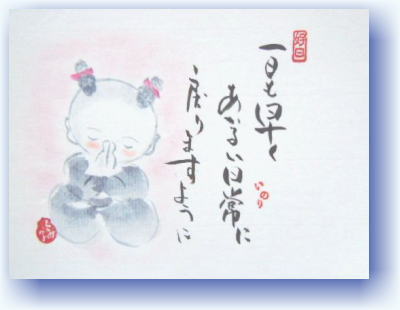 一日も早く
あかるい日常に
戻りますように
いのり